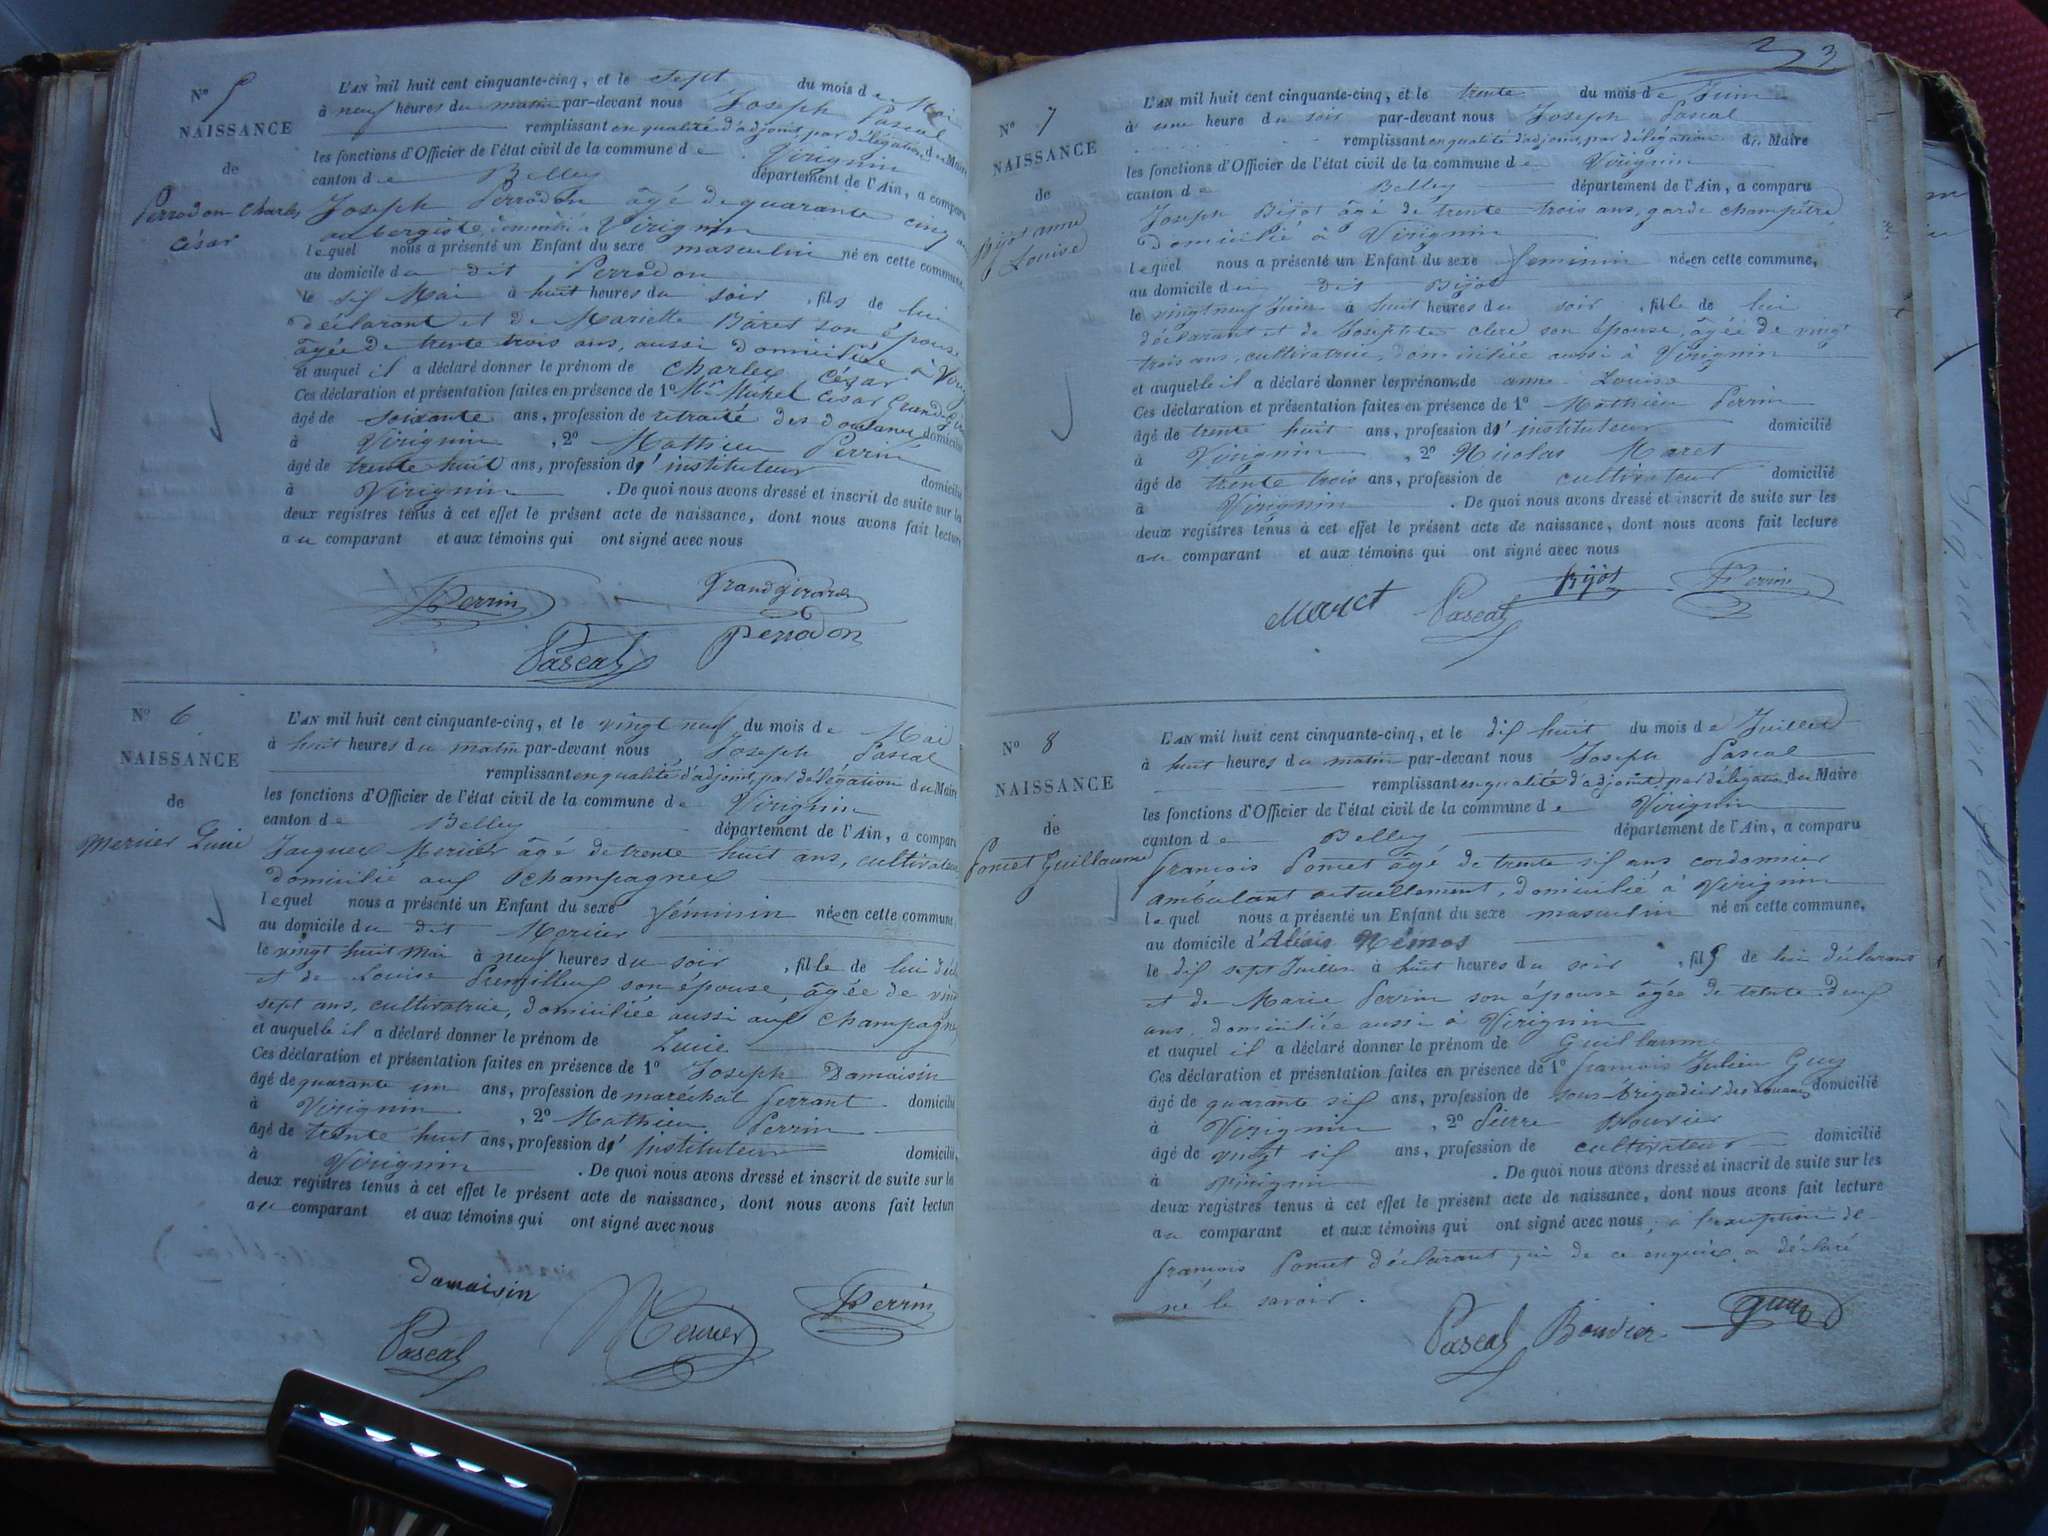 N° 5
NAISSANCE
de
Perrodon Charles
César
L'AN mil huit cent cinquante-cinq, et le sept du mois de Mai
à neuf heures du matin par-devant nous Joseph Pascal
remplissant en qualité d'adjoint par délégation du Maire
les fonctions d'Officier de l'état civil de la commune de Virignin
canton de Belley département de l'Ain, a comparu
Joseph Perrodon âgé de quarante cinq ans
aubergiste, domicilié à Virignin
lequel nous a présenté un Enfant du sexe masculin né en cette commune,
au domicile du dit Perrodon
le six Mai à huit heures du soir, fils de lui
déclarant et de Mariette Baret son épouse
âgée de trente trois ans, aussi domiciliée à Virig
et auquel il a déclaré donner le prénom de Charles César
Ces déclaration et présentation faites en présence de 1° Mr Michel César Grand
âgé de soixante ans, profession de retraité des douanes domicilié
à Virignin, 2° Mathieu Perrin
âgé de trente huit ans, profession d'instituteur domicilié
à Virignin. De quoi nous avons dressé et inscrit de suite sur les
deux registres tenus à cet effet le présent acte de naissance, dont nous avons fait lecture
au comparant et aux témoins qui ont signé avec nous
Perrin Grandgirard
Pascal Perrodon
N° 6
NAISSANCE
de
Mercier Lucie
L'AN mil huit cent cinquante-cinq, et le vingt neuf du mois de Mai
à huit heures du matin par-devant nous Joseph Pascal
remplissant en qualité d'adjoint par délégation du Maire
les fonctions d'Officier de l'état civil de la commune de Virignin
canton de Belley département de l'Ain, a comparu
Jacques Mercier âgé de trente huit ans, cultivateur
domicilié aux Champagnes
lequel nous a présenté un Enfant du sexe féminin née en cette commune,
au domicile du dit Mercier
le vingt huit Mai à neuf heures du soir, fille de lui décl
et de Louise son épouse, âgée de vingt
sept ans, cultivatrice, domiciliée aussi aux Champagnes
et auquelle il a déclaré donner le prénom de Lucie
Ces déclaration et présentation faites en présence de 1° Joseph Damaisin
âgé de quarante un ans, profession de maréchal ferrant domicilié
à Virignin, 2° Mathieu Perrin
âgé de trente huit ans, profession d'instituteur domicilié
à Virignin. De quoi nous avons dressé et inscrit de suite sur les
deux registres tenus à cet effet le présent acte de naissance, dont nous avons fait lecture
au comparant et aux témoins qui ont signé avec nous
Damaisin
Pascal Mercier Perrin
3
N° 7
NAISSANCE
de
Bijot anne
Louise
L'AN mil huit cent cinquante-cinq, et le trente du mois de Juin
à une heure du soir par-devant nous Joseph Pascal
remplissant en qualité d'adjoint, par délégation du Maire
les fonctions d'Officier de l'état civil de la commune de Virignin
canton de Belley département de l'Ain, a comparu
Joseph Bijot âgé de trente trois ans, garde champêtre,
domicilié à Virignin
lequel nous a présenté un Enfant du sexe féminin née en cette commune,
au domicile du dit Bijot
le vingt neuf Juin à huit heures du soir, fille de lui
déclarant et de Josephte clerc son épouse, âgée de vingt
trois ans, cultivatrice, domiciliée aussi à Virignin
et auquelle il a déclaré donner les prénoms de anne Louise
Ces déclaration et présentation faites en présence de 1° Mathieu Perrin
âgé de trente huit ans, profession d'instituteur domicilié
à Virignin, 2° Nicolas Maret
âgé de trente trois ans, profession de cultivateur domicilié
à Virignin. De quoi nous avons dressé et inscrit de suite sur les
deux registres tenus à cet effet le présent acte de naissance, dont nous avons fait lecture
au comparant et aux témoins qui ont signé avec nous
Maret Pascal Bijot Perrin
N° 8
NAISSANCE
de
Poncet Guillaume
L'AN mil huit cent cinquante-cinq, et le dix huit du mois de Juillet
à huit heures du matin par-devant nous Joseph Pascal
remplissant en qualité d'adjoint, par délégation du Maire
les fonctions d'Officier de l'état civil de la commune de Virignin
canton de Belley département de l'Ain, a comparu
françois Poncet âgé de trente six ans cordonnier
ambulant actuellement, domicilié à Virignin
lequel nous a présenté un Enfant du sexe masculin né en cette commune,
au domicile d'Alexis Némos
le dix sept Juillet à huit heures du soir, fils de lui déclarant
et de Marie Perrin son épouse âgée de trente deux
ans, domiciliée aussi à Virignin
et auquel il a déclaré donner le prénom de Guillaume
Ces déclaration et présentation faites en présence de 1° françois Julien Guy
âgé de quarante six ans, profession de sous brigadier des douanes domicilié
à Virignin, 2° Pierre Bouvier
âgé de vingt six ans, profession de cultivateur domicilié
à Virignin. De quoi nous avons dressé et inscrit de suite sur les
deux registres tenus à cet effet le présent acte de naissance, dont nous avons fait lecture
au comparant et aux témoins qui ont signé avec nous, à l'exception de
françois Poncet déclarant, qui de ce enquis a déclaré
ne le savoir.
Pascal Bouvier Guy